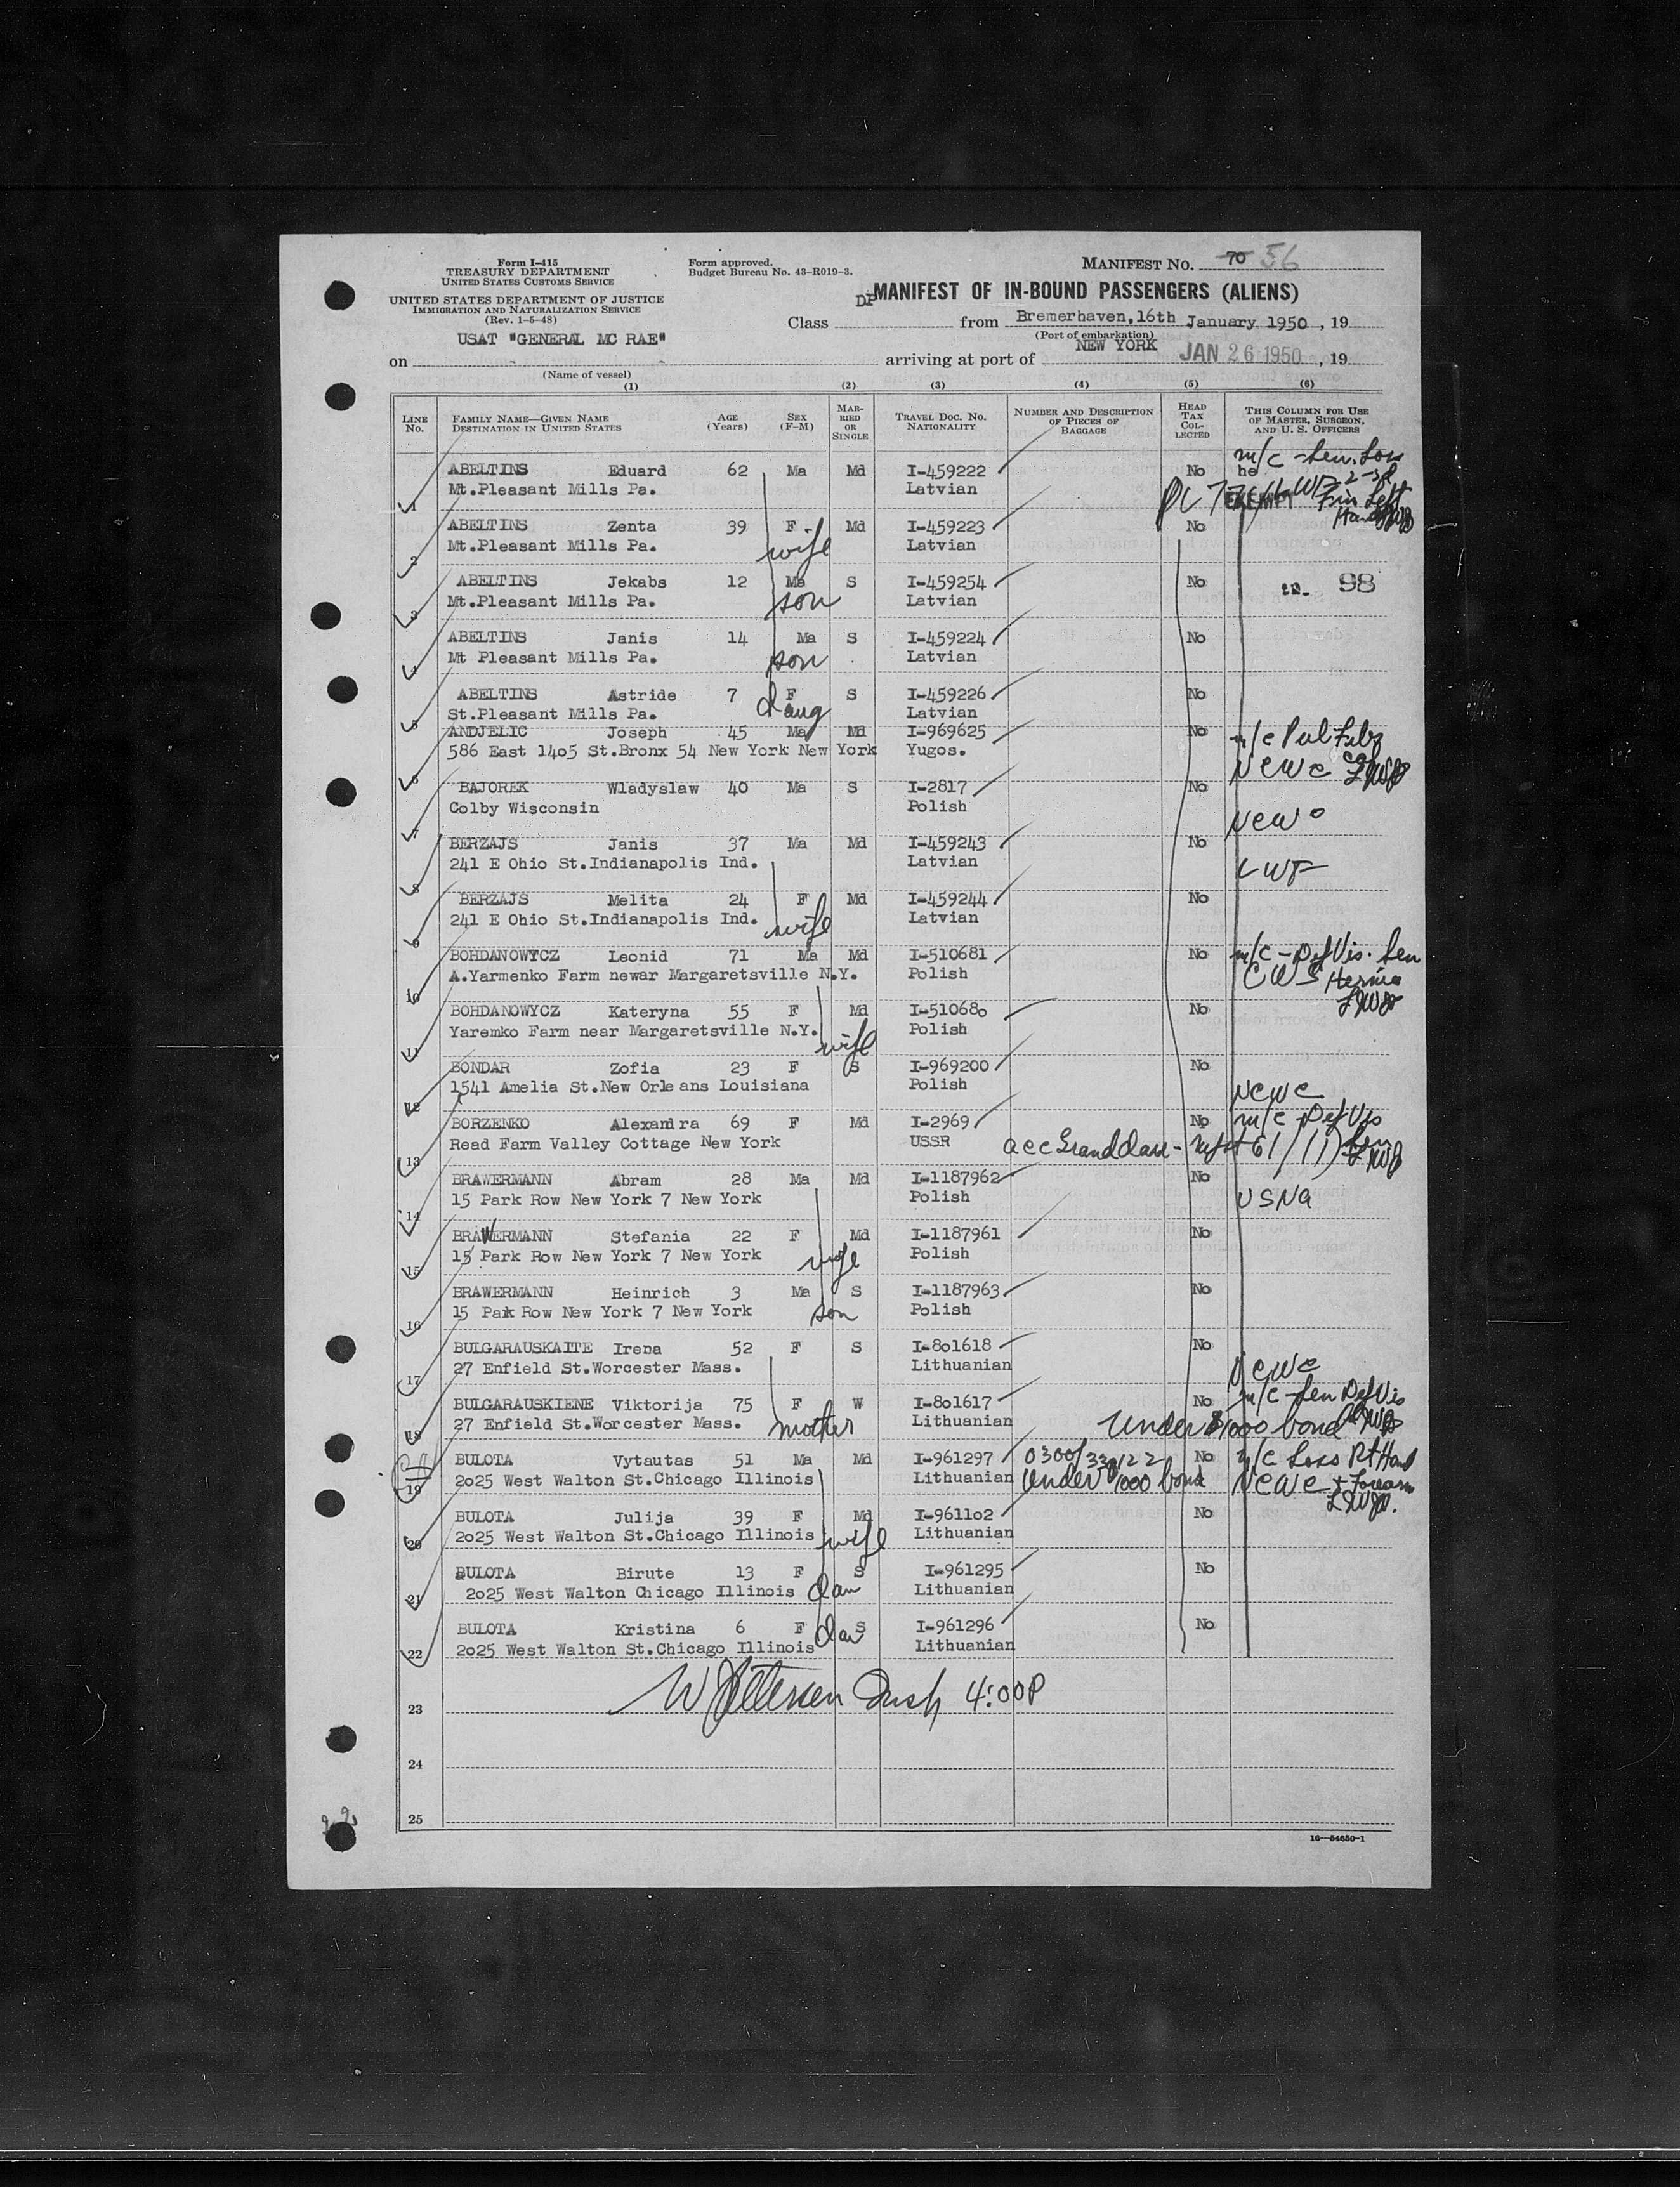 Form I-415
TREASURY DEPARTMENT
UNITED STATES CUSTOMS SERVICE
UNITED STATES DEPARTMENT OF JUSTICE
IMMIGRATION AND NATURALIZATION SERVICE
(Rev. 1-5-48)
Form approved.
Budget Bureau No. 43-R019-3.
MANIFEST No. 70 56
DP MANIFEST OF IN-BOUND PASSENGERS (ALIENS)
Class from Bremerhaven, 16th January 1950, 19
(Port of embarkation)
USAT "GENERAL MC RAE"
on arriving at port of NEW YORK JAN 26 1950, 19
(Name of vessel)
(1) (2) (3) (4) (5) (6)
LINE No. FAMILY NAME—GIVEN NAME DESTINATION IN UNITED STATES AGE (Years) SEX (F-M) MARRIED OR SINGLE TRAVEL DOC. No. NATIONALITY NUMBER AND DESCRIPTION OF PIECES OF BAGGAGE HEAD TAX COLLECTED THIS COLUMN FOR USE OF MASTER, SURGEON, AND U. S. OFFICERS
1 ABELTINS Eduard 62 Ma Md I-459222 No he m/c - Sen. Loss
Mt.Pleasant Mills Pa. Latvian EXEMPT Left Hand
2 ABELTINS Zenta 39 F Md I-459223 No
Mt.Pleasant Mills Pa. wife Latvian
3 ABELTINS Jekabs 12 Ma S I-459254 No 98
Mt.Pleasant Mills Pa. son Latvian
4 ABELTINS Janis 14 Ma S I-459224 No
Mt Pleasant Mills Pa. son Latvian
5 ABELTINS Astride 7 F S I-459226 No
St.Pleasant Mills Pa. daug Latvian
6 ANDJELIC Joseph 45 Ma Md I-969625 No m/c Pul
586 East 1405 St.Bronx 54 New York New York Yugos. NCWC
7 BAJOREK Wladyslaw 40 Ma S I-2817 No
Colby Wisconsin Polish NCWC
8 BERZAJS Janis 37 Ma Md I-459243 No
241 E Ohio St.Indianapolis Ind. Latvian LWF
9 BERZAJS Melita 24 F Md I-459244 No
241 E Ohio St.Indianapolis Ind. wife Latvian
10 BOHDANOWYCZ Leonid 71 Ma Md I-510681 No m/c - Def Vis. Sen
A.Yarmenko Farm newar Margaretsville N.Y. Polish CWS Hernia
11 BOHDANOWYCZ Kateryna 55 F Md I-510680 No
Yaremko Farm near Margaretsville N.Y. wife Polish
12 BONDAR Zofia 23 F S I-969200 No
1541 Amelia St.New Orleans Louisiana Polish NCWC
13 BORZENKO Alexandra 69 F Md I-2969 No m/c - Def Vis
Read Farm Valley Cottage New York USSR acc Grand dau - 61/11) Sen
14 BRAWERMANN Abram 28 Ma Md I-1187962 No
15 Park Row New York 7 New York Polish USNA
15 BRAWERMANN Stefania 22 F Md I-1187961 No
15 Park Row New York 7 New York wife Polish
16 BRAWERMANN Heinrich 3 Ma S I-1187963 No
15 Park Row New York 7 New York son Polish
17 BULGARAUSKAITE Irena 52 F S I-801618 No
27 Enfield St.Worcester Mass. Lithuanian NCWC
18 BULGARAUSKIENE Viktorija 75 F W I-801617 No m/c - Sen Def Vis
27 Enfield St.Worcester Mass. mother Lithuanian Under $1000 bond
19 BULOTA Vytautas 51 Ma Md I-961297 No m/c Loss Rt Hand
2025 West Walton St.Chicago Illinois Lithuanian Under $1000 bond NCWC + Forearm
20 BULOTA Julija 39 F Md I-961102 No
2025 West Walton St.Chicago Illinois wife Lithuanian
21 BULOTA Birute 13 F S I-961295 No
2025 West Walton Chicago Illinois dau Lithuanian
22 BULOTA Kristina 6 F S I-961296 No
2025 West Walton St.Chicago Illinois dau Lithuanian
23 4:00P
24
25
16—54650-1